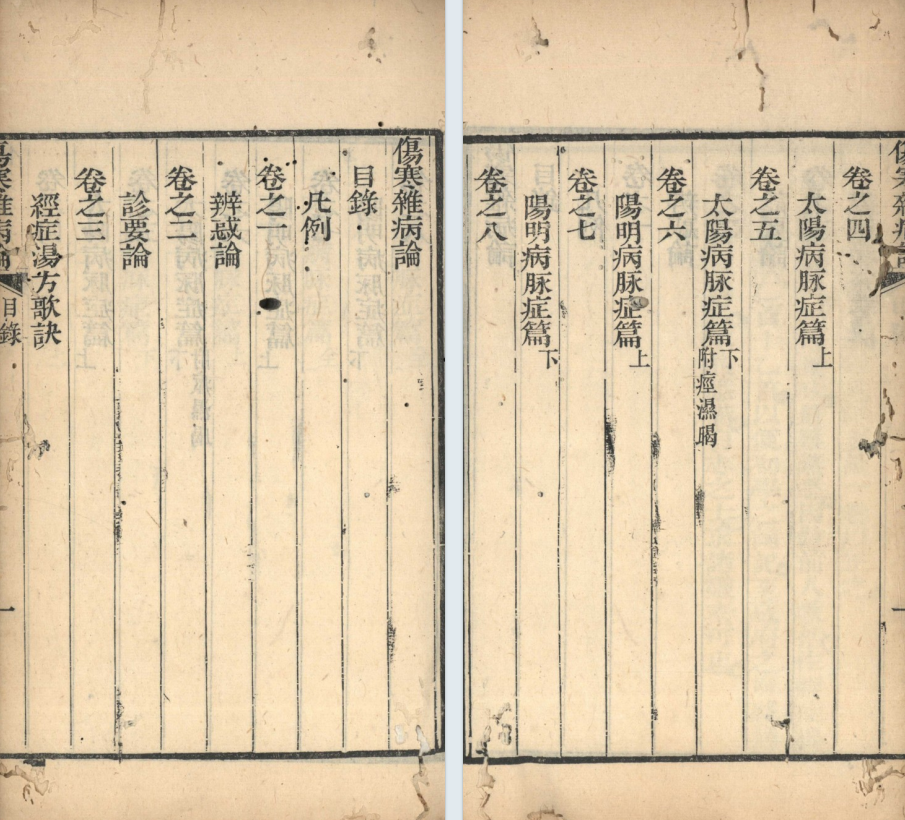 傷寒雜病論
目錄
凡例
卷之一
辨惑論
卷之二
診要論
卷之三
經症湯方歌訣
傷寒雜病論 目錄 一
卷之四
太陽病脉症篇上
卷之五
太陽病脉症篇下 附痙濕暍
卷之六
陽明病脉症篇上
卷之七
陽明病脉症篇下
卷之八